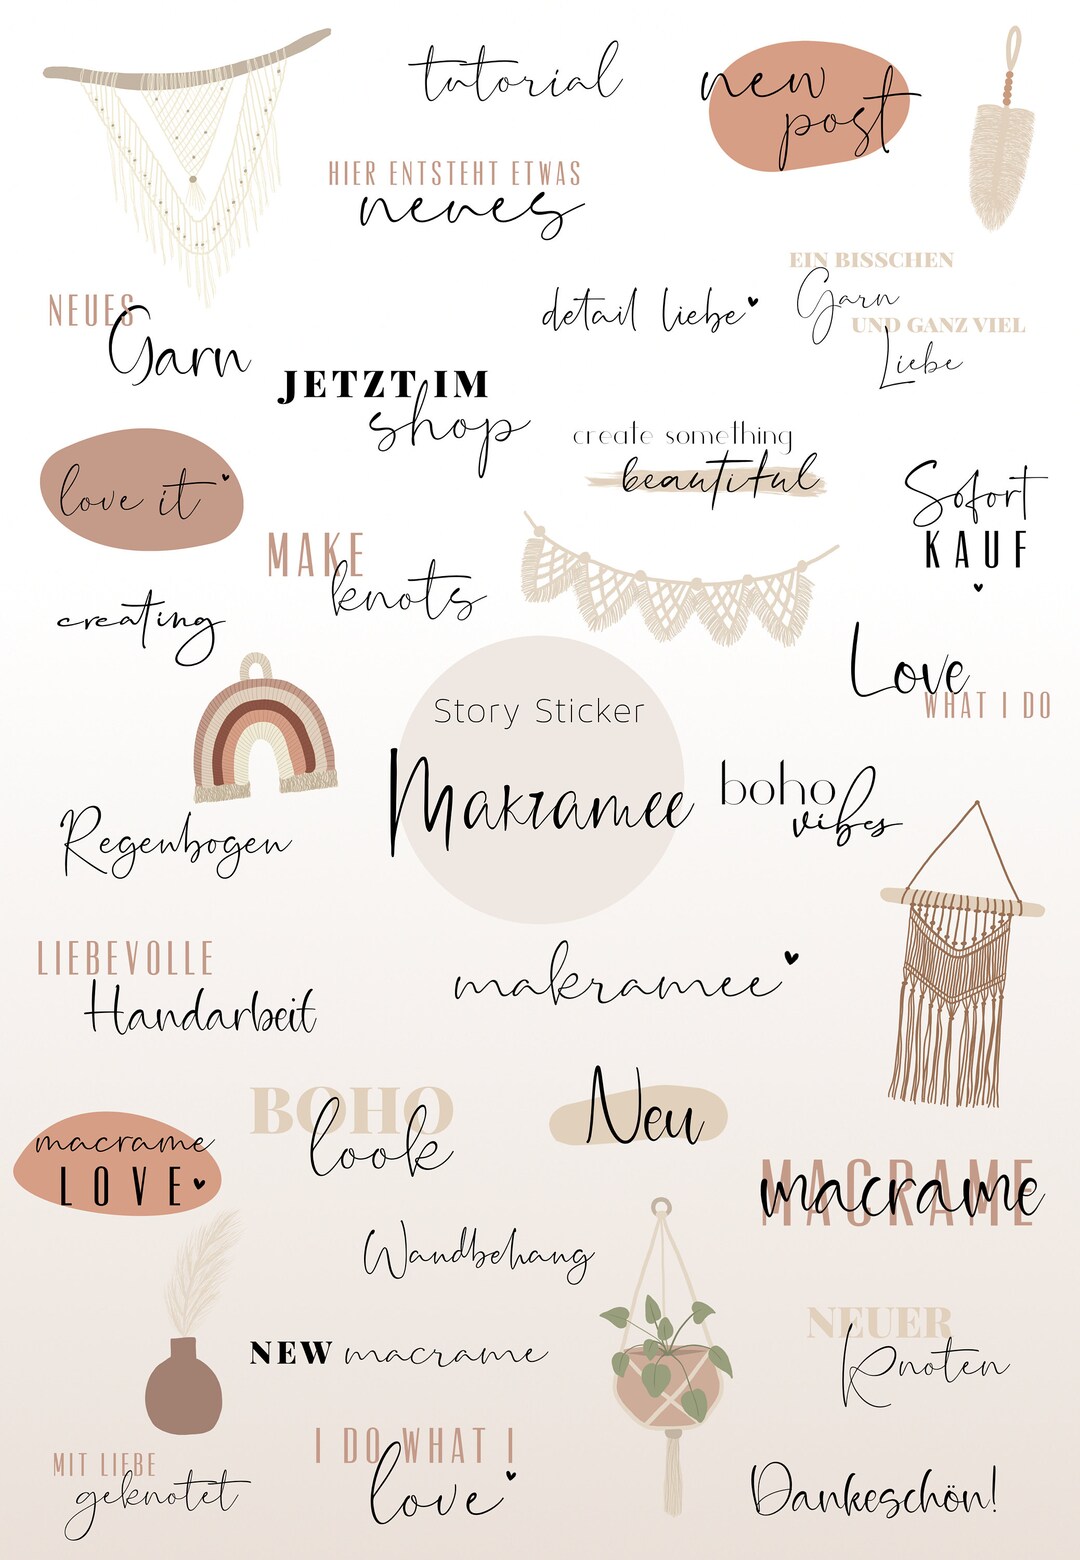 tutorial
new
post
HIER ENTSTEHT ETWAS
neues
EIN BISSCHEN
Garn
UND GANZ VIEL
Liebe
NEUES
Garn
detail liebe
JETZT IM
shop
create something
beautiful
love it
Sofort
KAUF
MAKE
knots
creating
Love
WHAT I DO
Story Sticker
Makramee
boho
vibes
Regenbogen
LIEBEVOLLE
Handarbeit
makramee
BOHO
look
Neu
macrame
LOVE
MACRAME
macrame
Wandbehang
NEUER
Knoten
NEW macrame
MIT LIEBE
geknotet
I DO WHAT I
love
Dankeschön!